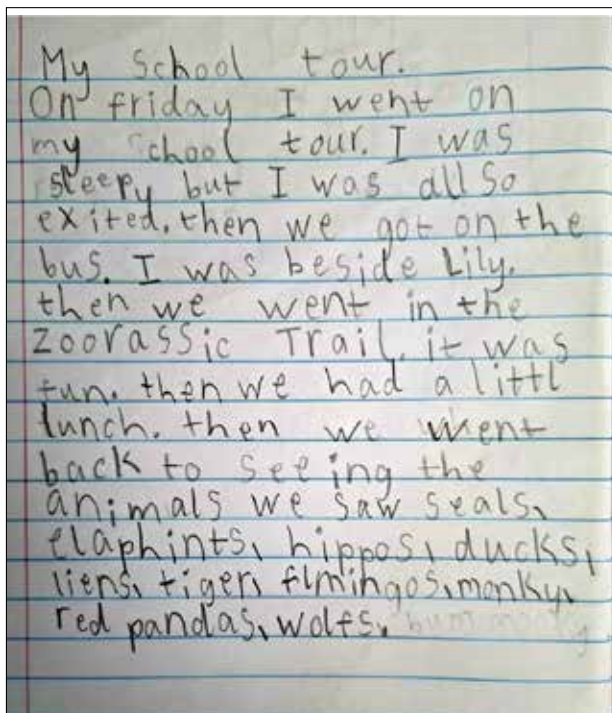 My School tour.
On friday I went on
my school tour. I was
sleepy but I was all so
exited. then we got on the
bus. I was beside Lily.
then we went in the
Zoorassic Trail. it was
fun. then we had a littl
lunch. then we went
back to seeing the
animals we saw seals,
elaphints, hippos, ducks,
liens, tiger, flmingos, monky,
red pandas, wolfs,